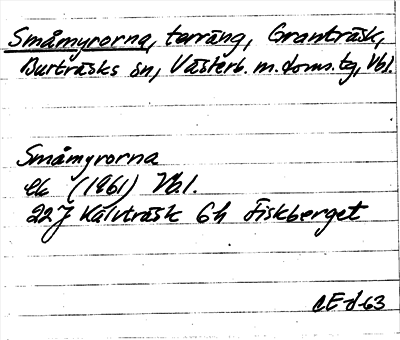 Småmyrorna, terräng, Granträsk,
Burträsks sn, Västerb. m. doms. tg, Vbl.
Småmyrorna
Ek (1961) Vbl.
22J Kalvträsk 6h Fiskberget
CE-d-63